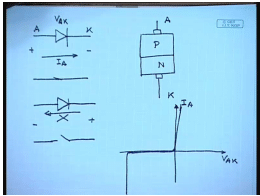 V_AK
A K
+ -
I_A
X
- +
A
P
N
K
I_A
V_AK